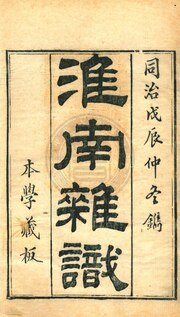 同治戊辰仲冬鐫
淮南雜識
本學藏板